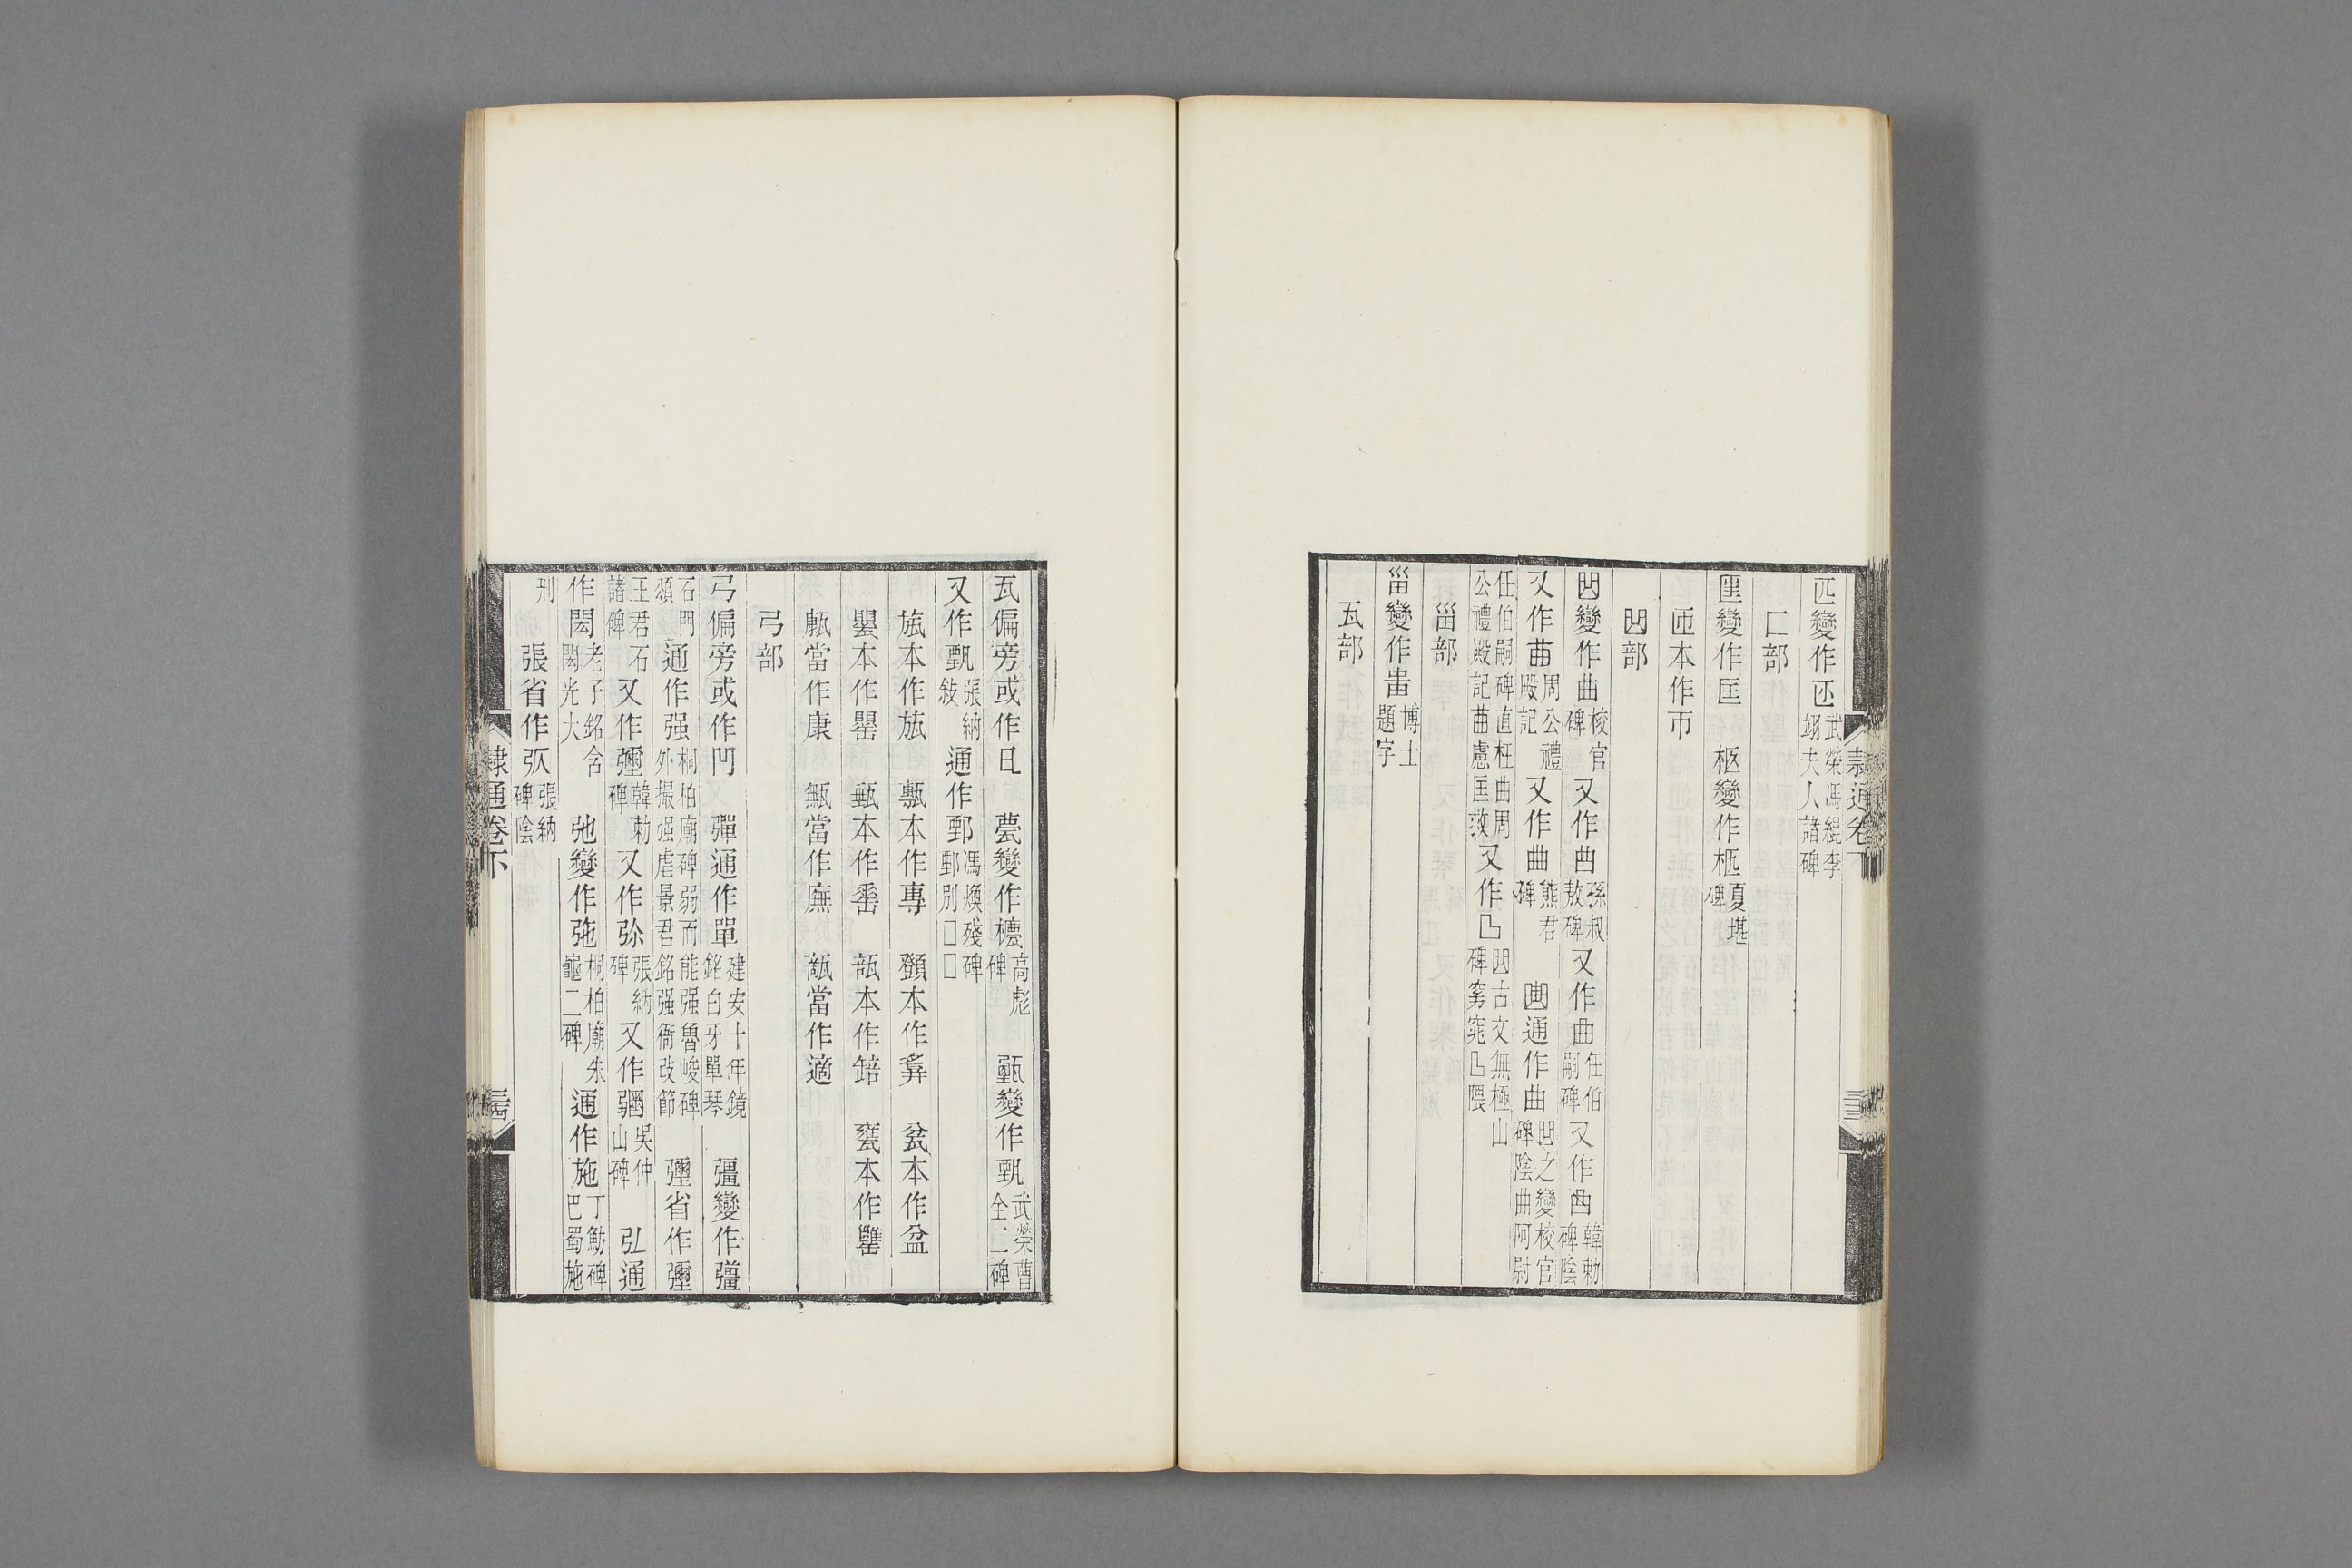 匹變作𠥼武榮馮緄李翊夫人諸碑
匚部
匩變作匡 柩變作柩夏堪碑
匝本作帀
𠚖部
𠚖變作曲校官碑又作曲孫叔敖碑又作曲任伯嗣碑又作凾韓勅碑陰
又作𦾔周公禮殿記又作曲熊君碑 𠚖通作曲𠚖之變校官碑陰曲阿尉
任伯嗣碑直枉曲周公禮殿記曲慮匡救又作凵𠚖古文無極山碑窮窕凵隈
甾部
甾變作𤰕博士題字
瓦部
隸通卷下
瓦偏旁或作㠯 甍變作櫘高彪碑 甄變作甄武榮曹全二碑
又作甄張納敍 通作鄄馮煥殘碑鄄別□□
㼚本作瓬 甎本作專 㽅本作㢡 瓫本作盆
甖本作罌 㼶本作䍃 瓿本作䍌 甕本作罋
㼹當作康 甒當作廡 㼽當作適
弓部
弓偏旁或作𠕁 彈通作單建安十年鏡銘白牙單琴 彊變作彊
石門頌 通作强桐柏廟碑弱而能强魯峻碑外撮强虐景君銘强衙改節 彌省作彌
王君石諸碑 又作瓕韓勅碑又作弥張納碑又作𢐡吳仲山碑 弘通
作閎老子銘含閎光大 弛變作㢮桐柏廟朱龜二碑 通作施丁魴碑巴蜀施
刑 張省作㢧張納碑陰
隸通卷下